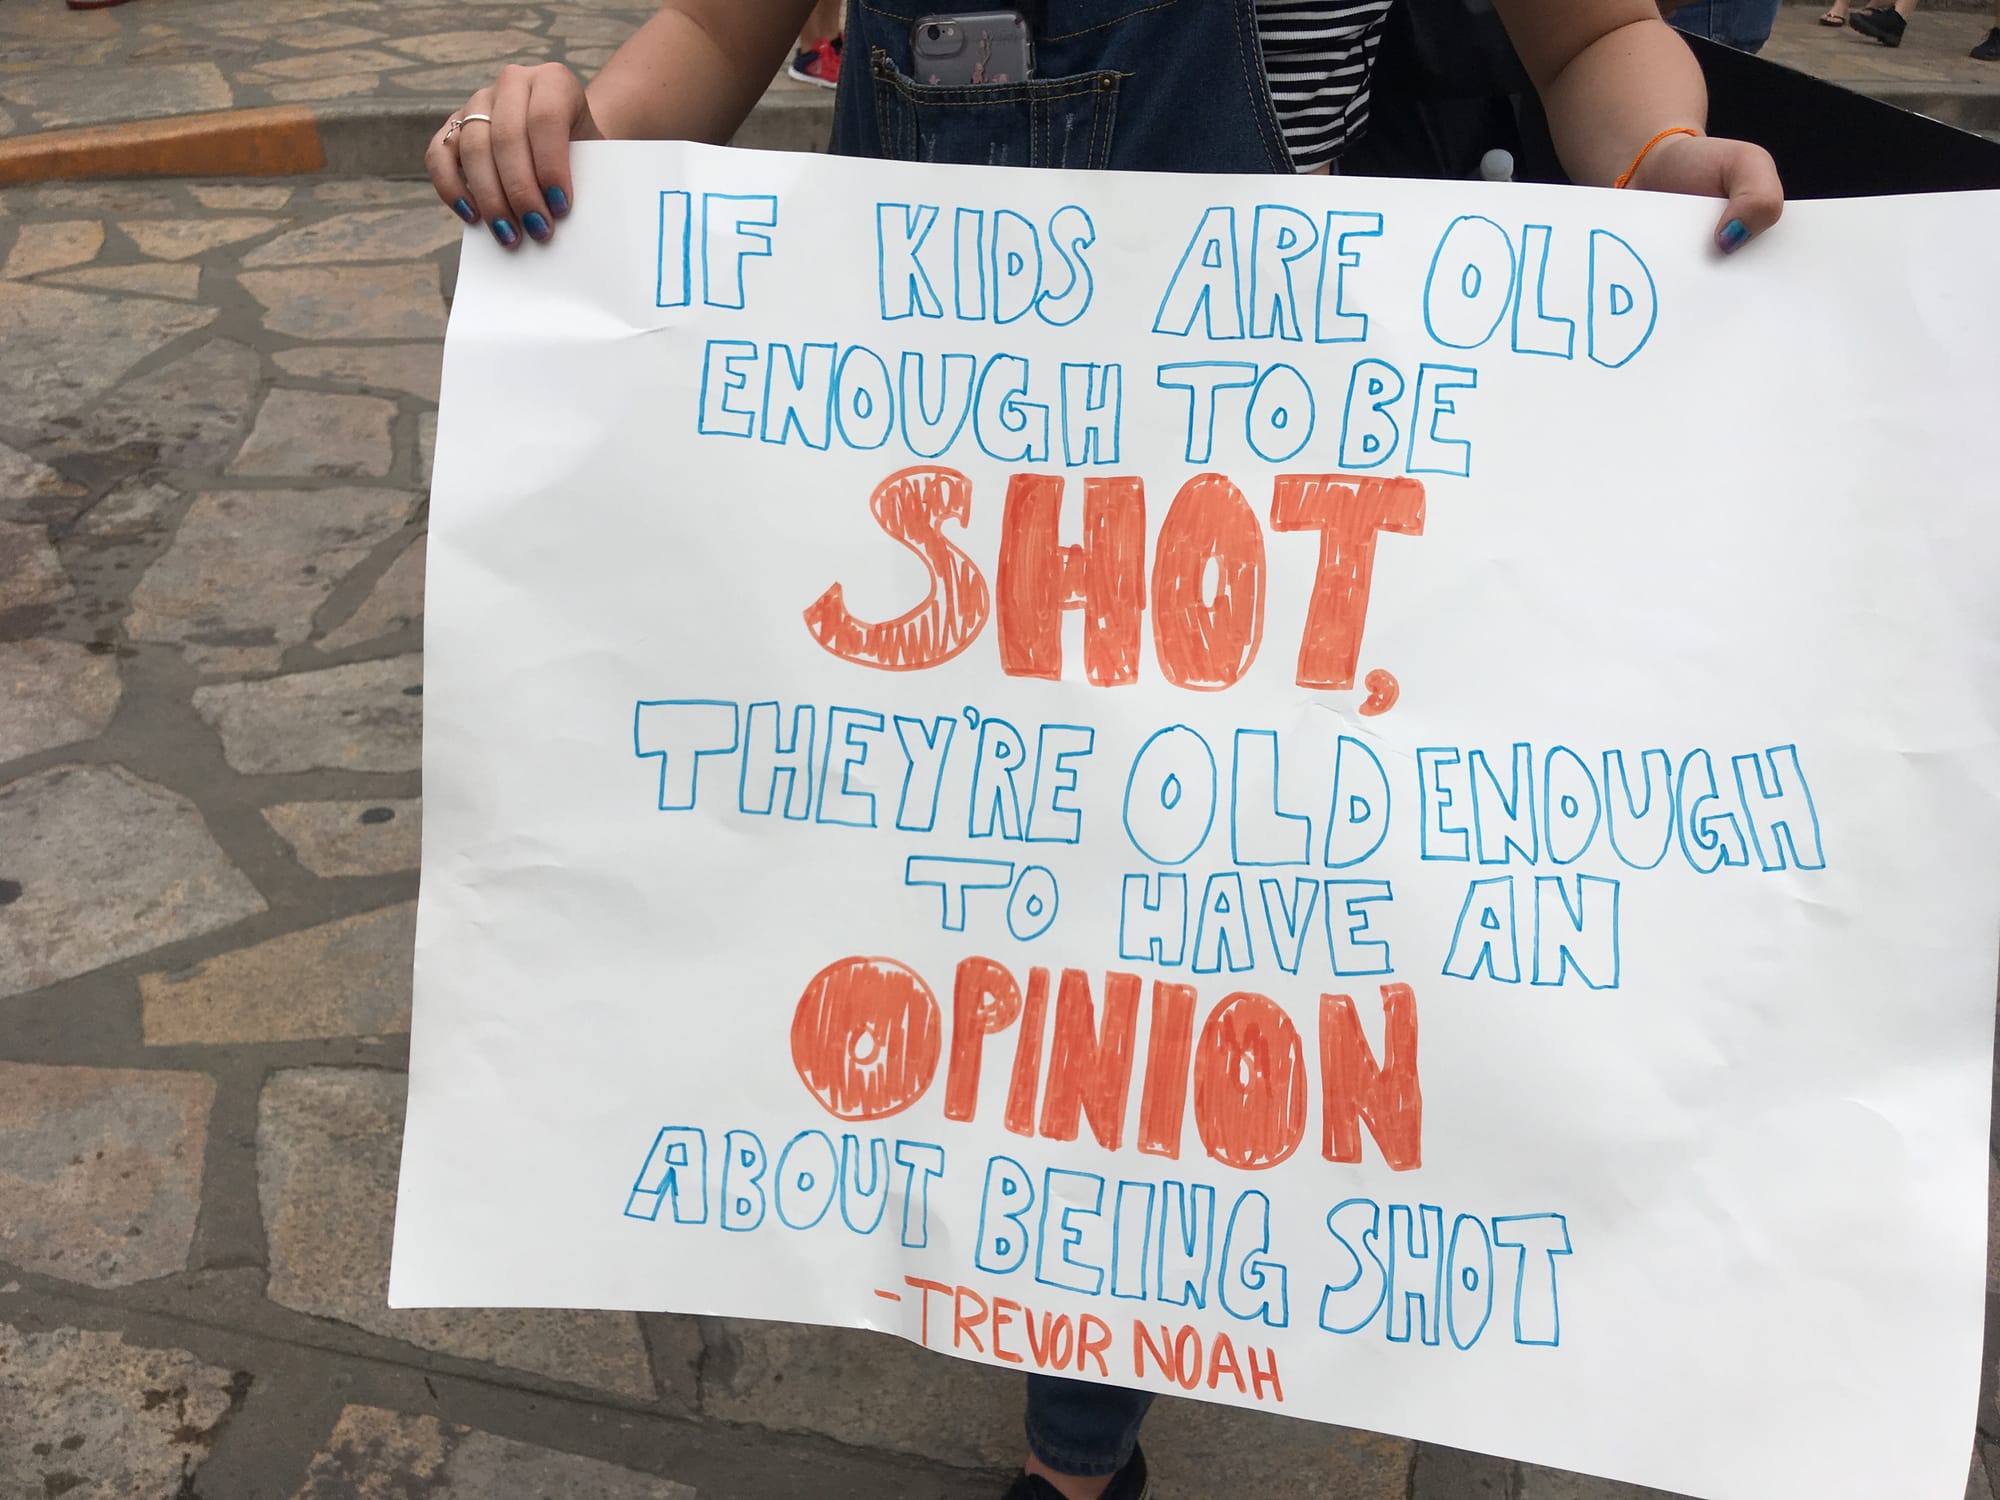 IF KIDS ARE OLD
ENOUGH TO BE
SHOT,
THEY'RE OLD ENOUGH
TO HAVE AN
OPINION
ABOUT BEING SHOT
-TREVOR NOAH